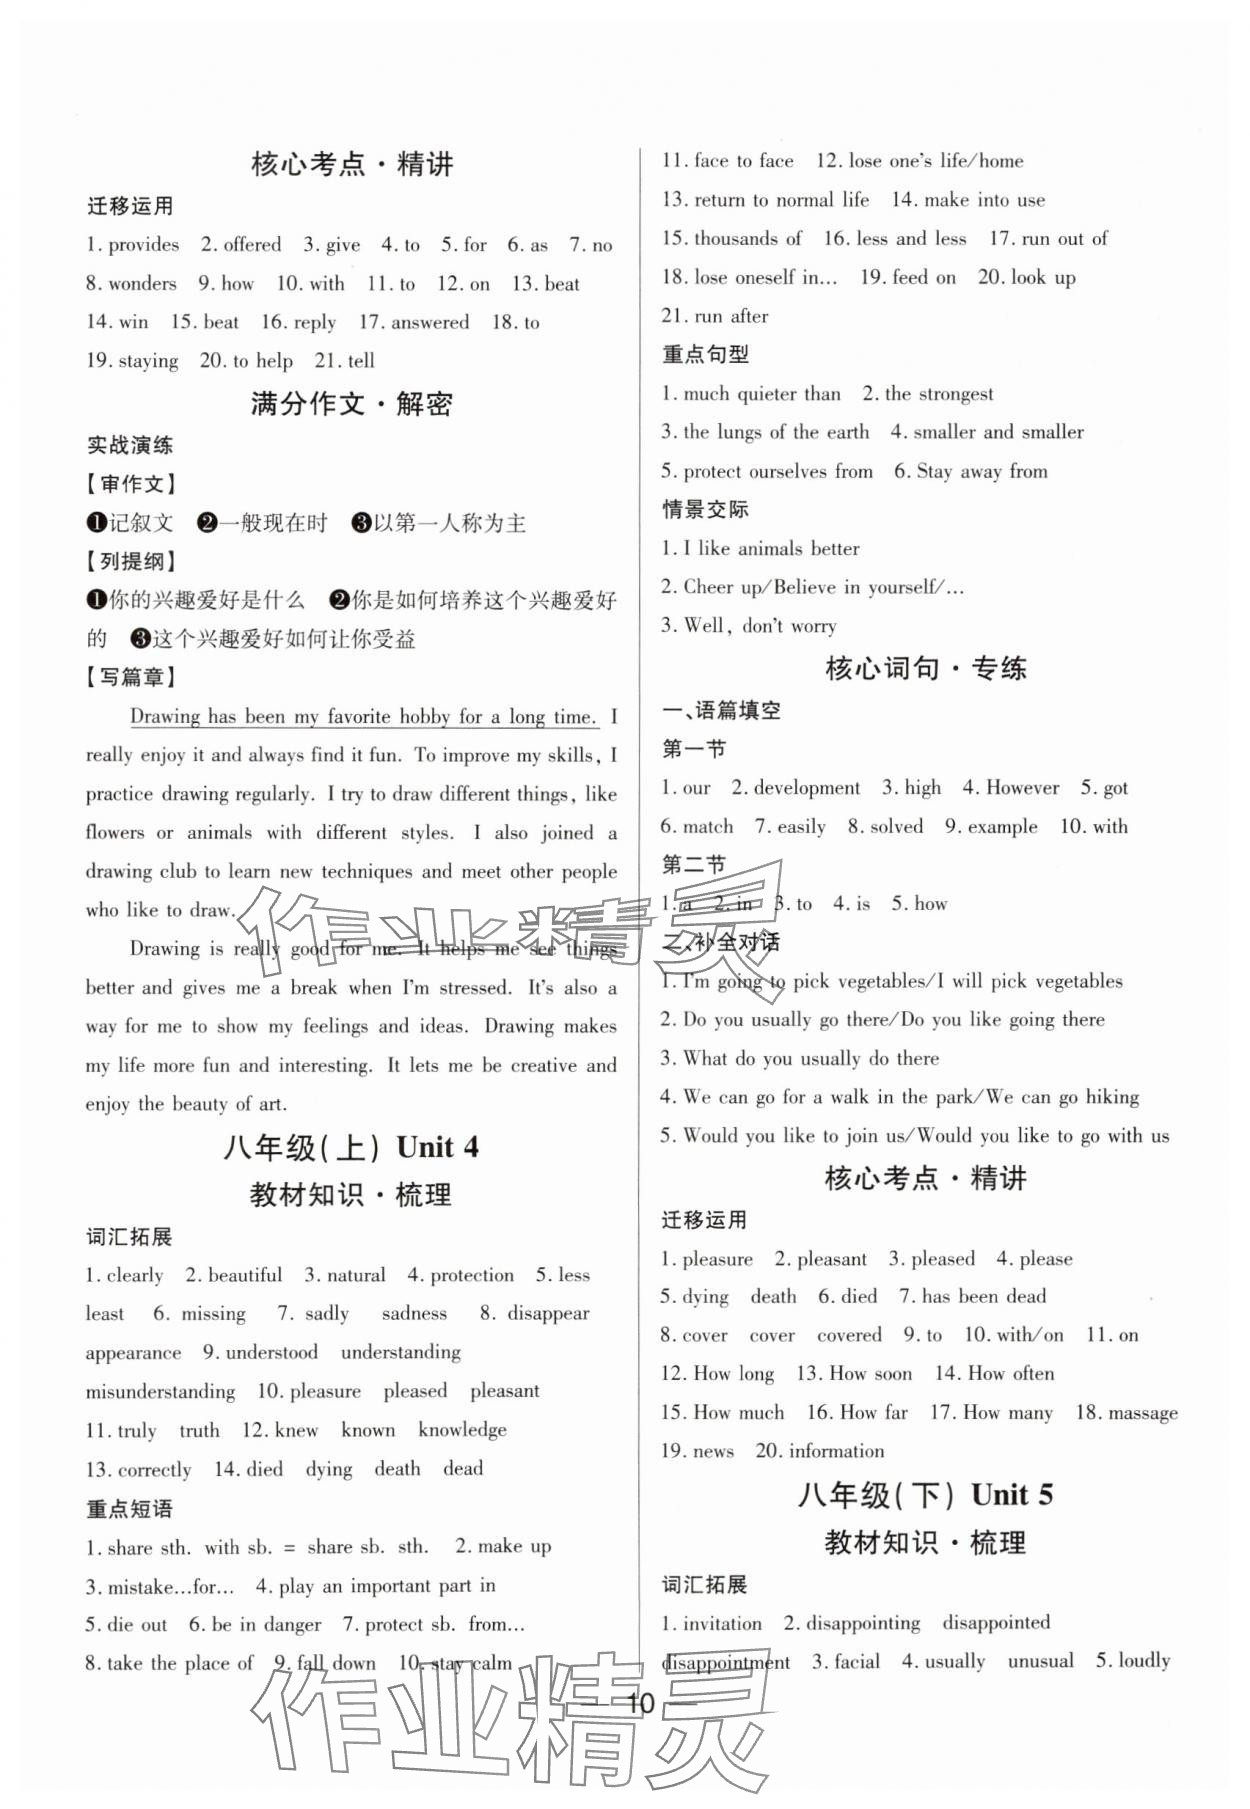 核心考点·精讲
迁移运用
1. provides 2. offered 3. give 4. to 5. for 6. as 7. no
8. wonders 9. how 10. with 11. to 12. on 13. beat
14. win 15. beat 16. reply 17. answered 18. to
19. staying 20. to help 21. tell
满分作文·解密
实战演练
【审作文】
❶记叙文 ❷一般现在时 ❸以第一人称为主
【列提纲】
❶你的兴趣爱好是什么 ❷你是如何培养这个兴趣爱好
的 ❸这个兴趣爱好如何让你受益
【写篇章】
Drawing has been my favorite hobby for a long time. I
really enjoy it and always find it fun. To improve my skills, I
practice drawing regularly. I try to draw different things, like
flowers or animals with different styles. I also joined a
drawing club to learn new techniques and meet other people
who like to draw.
Drawing is really good for me. It helps me see things
better and gives me a break when I'm stressed. It's also a
way for me to show my feelings and ideas. Drawing makes
my life more fun and interesting. It lets me be creative and
enjoy the beauty of art.
八年级(上) Unit 4
教材知识·梳理
词汇拓展
1. clearly 2. beautiful 3. natural 4. protection 5. less
least 6. missing 7. sadly sadness 8. disappear
appearance 9. understood understanding
misunderstanding 10. pleasure pleased pleasant
11. truly truth 12. knew known knowledge
13. correctly 14. died dying death dead
重点短语
1. share sth. with sb. = share sb. sth. 2. make up
3. mistake...for... 4. play an important part in
5. die out 6. be in danger 7. protect sb. from...
8. take the place of 9. fall down 10. stay calm
11. face to face 12. lose one's life/home
13. return to normal life 14. make into use
15. thousands of 16. less and less 17. run out of
18. lose oneself in... 19. feed on 20. look up
21. run after
重点句型
1. much quieter than 2. the strongest
3. the lungs of the earth 4. smaller and smaller
5. protect ourselves from 6. Stay away from
情景交际
1. I like animals better
2. Cheer up/Believe in yourself/...
3. Well, don't worry
核心词句·专练
一、语篇填空
第一节
1. our 2. development 3. high 4. However 5. got
6. match 7. easily 8. solved 9. example 10. with
第二节
1. a 2. in 3. to 4. is 5. how
二、补全对话
1. I'm going to pick vegetables/I will pick vegetables
2. Do you usually go there/Do you like going there
3. What do you usually do there
4. We can go for a walk in the park/We can go hiking
5. Would you like to join us/Would you like to go with us
核心考点·精讲
迁移运用
1. pleasure 2. pleasant 3. pleased 4. please
5. dying death 6. died 7. has been dead
8. cover cover covered 9. to 10. with/on 11. on
12. How long 13. How soon 14. How often
15. How much 16. How far 17. How many 18. massage
19. news 20. information
八年级(下) Unit 5
教材知识·梳理
词汇拓展
1. invitation 2. disappointing disappointed
disappointment 3. facial 4. usually unusual 5. loudly
— 10 —
作业精灵
作业精灵